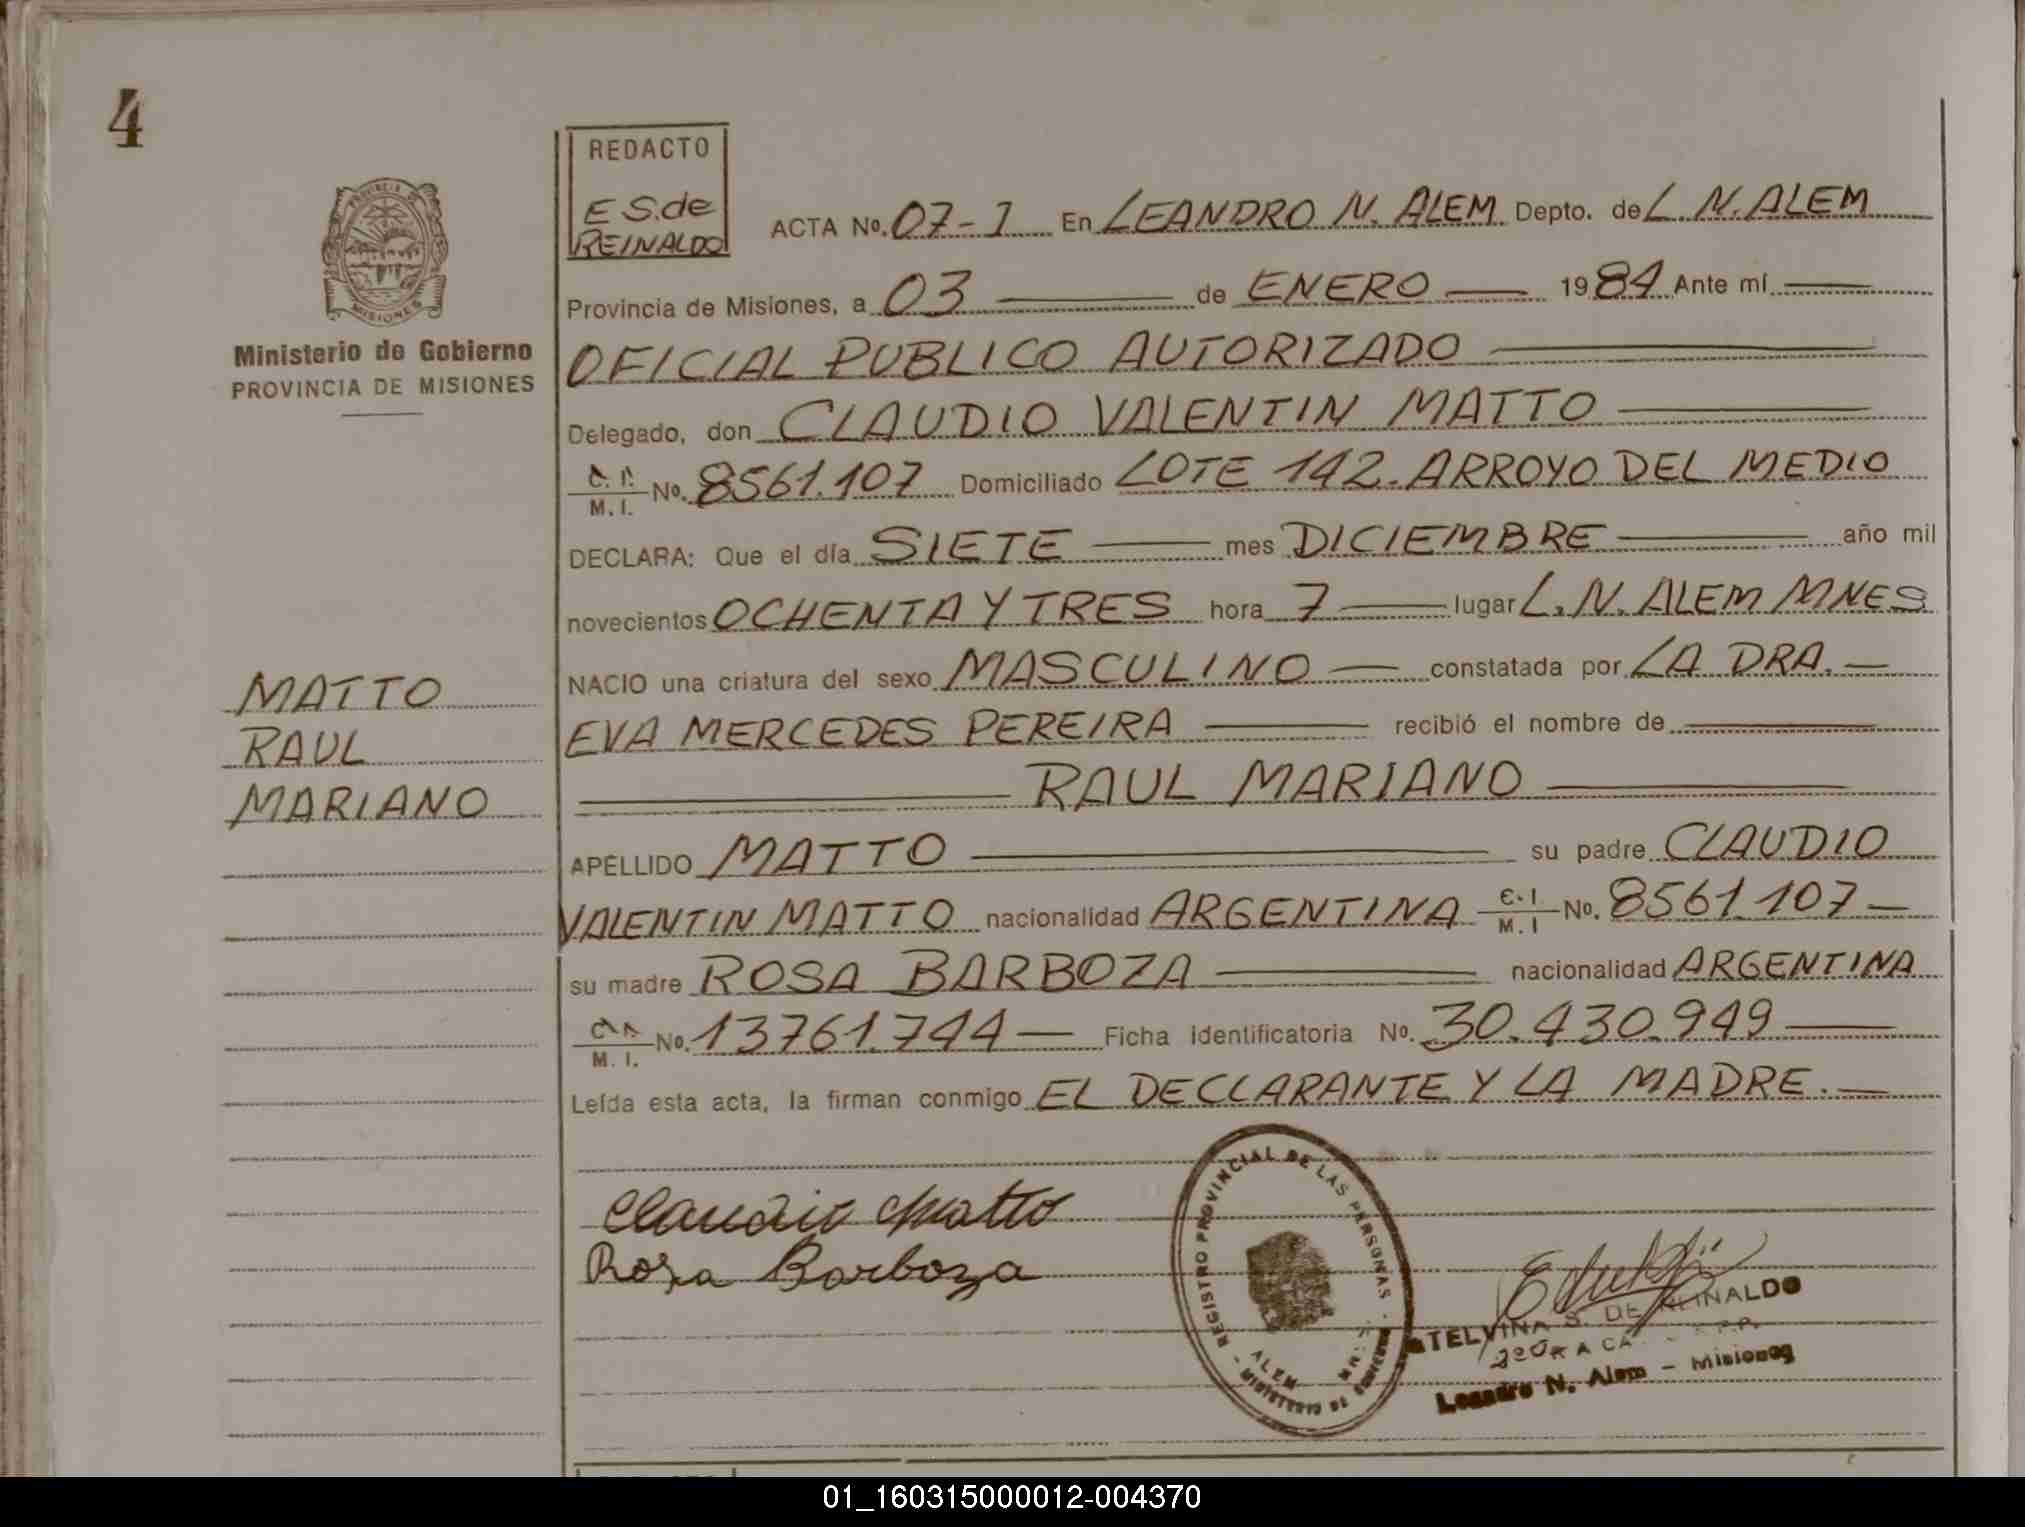 4
REDACTO
E S. de
REINALDO
ACTA No. 07-1 En LEANDRO N. ALEM Depto. de L. N. ALEM
Provincia de Misiones, a 03 de ENERO 1984 Ante mí
OFICIAL PUBLICO AUTORIZADO
Delegado, don CLAUDIO VALENTIN MATTO
C. I. M. I. No. 8561.107 Domiciliado LOTE 142. ARROYO DEL MEDIO
DECLARA: Que el día SIETE mes DICIEMBRE año mil
novecientos OCHENTA Y TRES hora 7 lugar L. N. ALEM MNES
NACIO una criatura del sexo MASCULINO constatada por LA DRA.
EVA MERCEDES PEREIRA recibió el nombre de
RAUL MARIANO
APELLIDO MATTO su padre CLAUDIO
VALENTIN MATTO nacionalidad ARGENTINA C. I M. I No. 8561.107
su madre ROSA BARBOZA nacionalidad ARGENTINA
C. I. M. I. No. 13761.744 Ficha identificatoria No. 30.430.949
Leída esta acta, la firman conmigo EL DECLARANTE Y LA MADRE.
PROVINCIA DE
MISIONES
Ministerio de Gobierno
PROVINCIA DE MISIONES
MATTO
RAUL
MARIANO
Claudio Matto
Rosa Barboza
REGISTRO PROVINCIAL DE LAS PERSONAS
ALEM
MINISTERIO DE GOBIERNO
ETELVINA S. DE REINALDO
Leandro N. Alem - Misiones
01_160315000012-004370